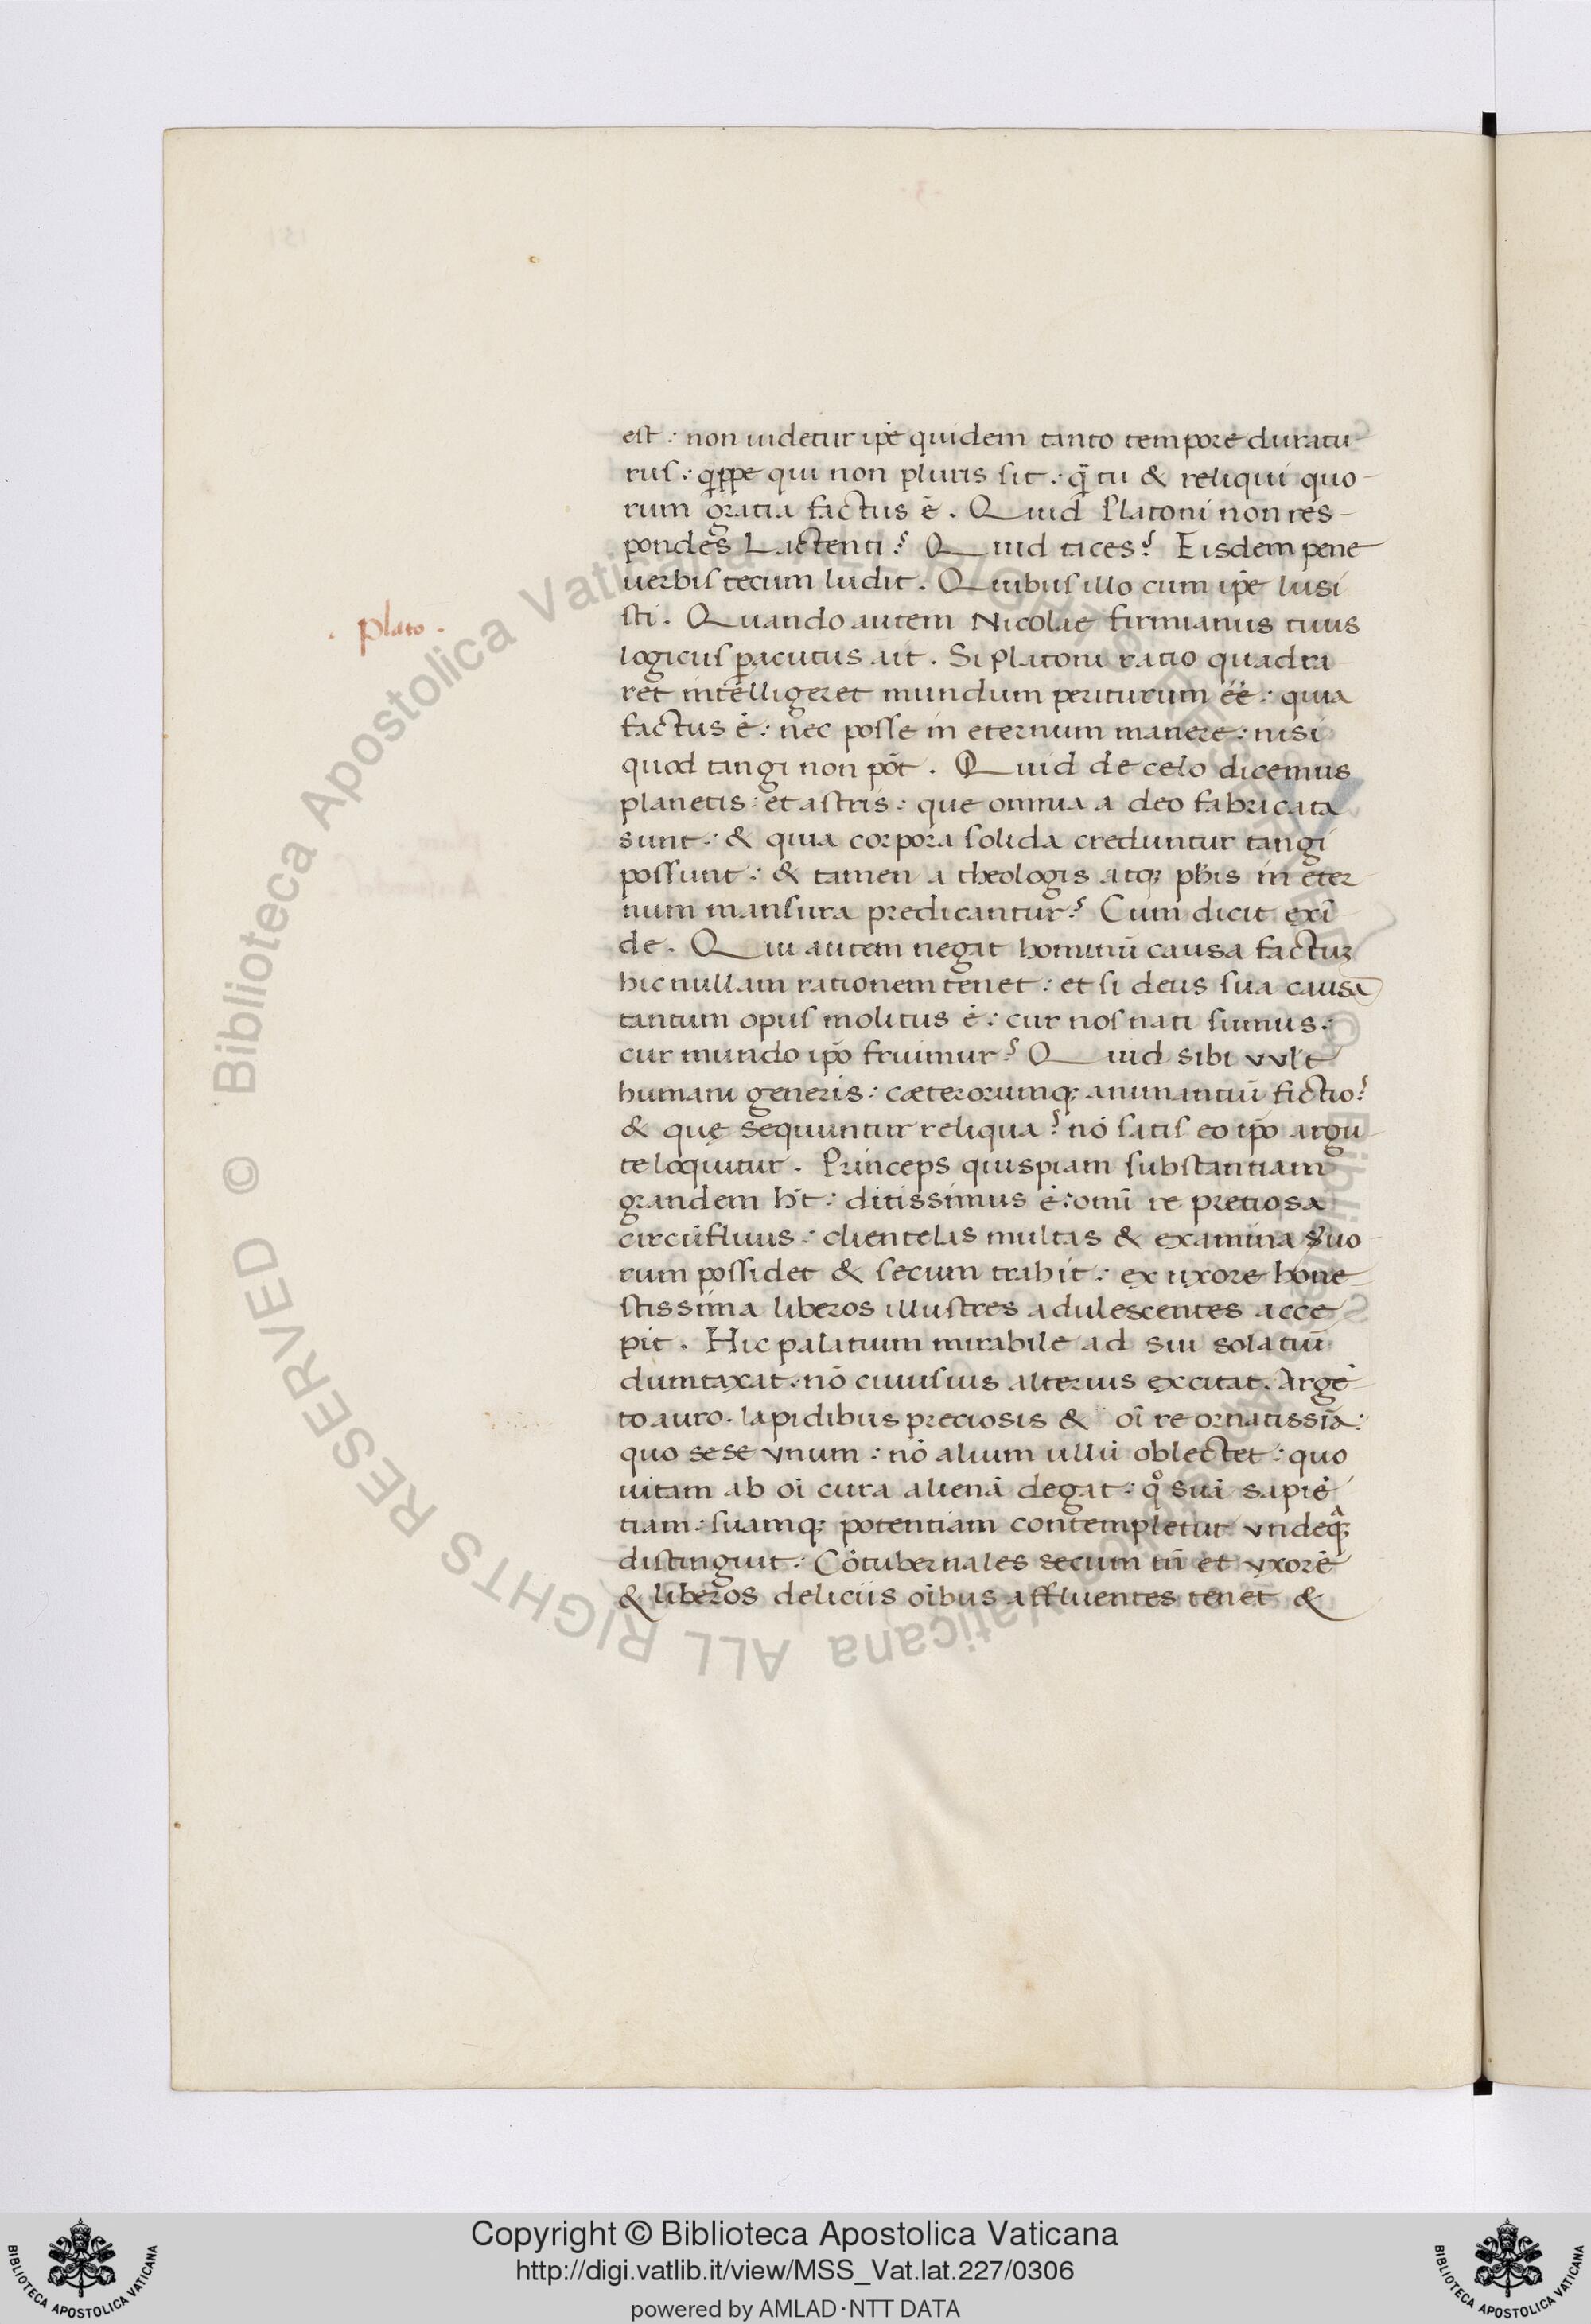 . Plato .
est : non uidetur ip̄e quidem tanto tempore duratu
rus : q̄ppe qui non pluris sit : q̄ tu & reliqui quo-
rum gratia factus ē . Quid Platoni non res-
pondes Lactenti ? Quid taces ? Eisdem pene
uerbis tecum ludit . Quibus illo cum ip̄e lusi
sti . Quando autem Nicolae firmianus tuus
logicus p̄acutus ait . Si Platoni ratio quadra
ret intelligeret mundum periturum ēē : quia
factus ē : nec posse in eternum manere : nisi
quod tangi non pōt . Quid de celo dicemus
planetis : et astris : que omnia a deo fabricata
sunt : & quia corpora solida creduntur tangi
possunt : & tamen a theologis atq; ph̄is in eter
num mansura predicantur ? Cum dicit exī
de . Qui autem negat hominū causa factuꝫ
hic nullam rationem tenet : et si deus sua causa
tantum opus molitus ē : cur nos nati sumus :
cur mundo ip̄o fruimur ? Quid sibi vult
humani generis : cæterorumq; animantiū fictio ?
& quę sequuntur reliqua ? nō satis eo ip̄o argu
te loquitur . Princeps quispiam substantiam
grandem h̄t : ditissimus ē : omī re pretiosa
circūfluus : clientelas multas & examina suo
rum possidet & secum trahit : ex uxore hone
stissima liberos illustres adulescentes acce
pit . Hic palatium mirabile ad sui solatiū
dumtaxat . nō cuiusuis alterius excitat . Argē
to auro . lapidibus preciosis & oī re ornatissīa :
quo sese vnum : nō alium ullū oblectet : quo
uitam ab oī cura alienā degat : qͦ suā sapiē
tiam : suamq; potentiam contempletur vndeq;
distinguit : Cōtubernales secum tn̄ et vxorē
& liberos deliciis oībus affluentes tenet &
© Biblioteca Apostolica Vaticana ALL RIGHTS RESERVED
© Biblioteca Apostolica Vaticana ALL RIGHTS RESERVED
Copyright © Biblioteca Apostolica Vaticana
http://digi.vatlib.it/view/MSS_Vat.lat.227/0306
powered by AMLAD·NTT DATA
BIBLIOTECA APOSTOLICA VATICANA
BIBLIOTECA APOSTOLICA VATICANA